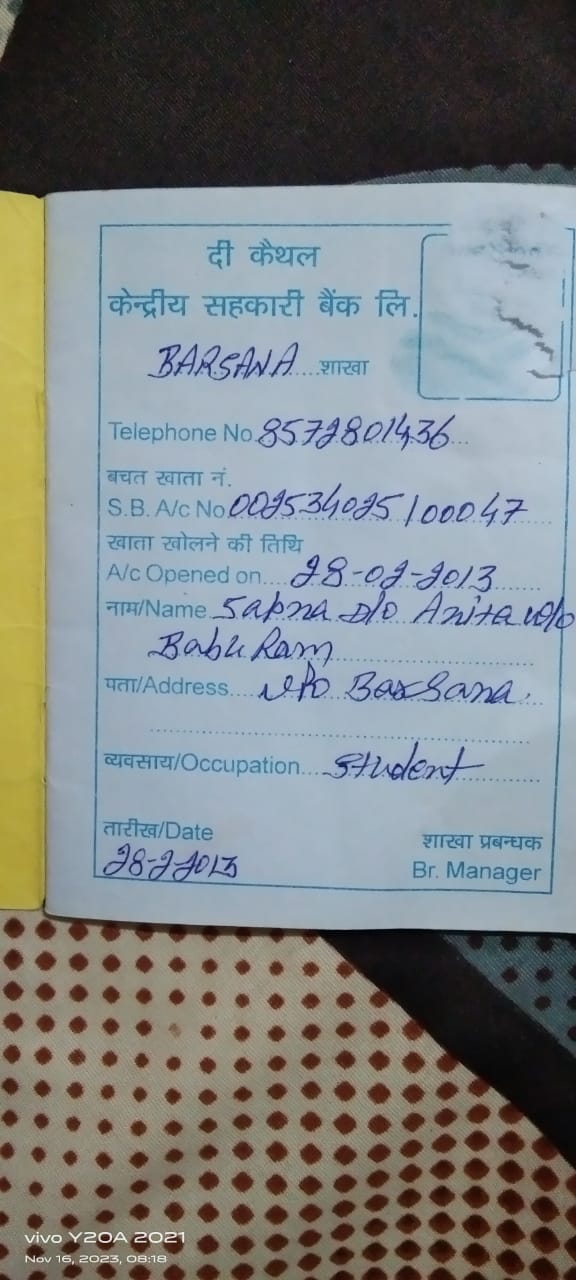 दी कैथल
केन्द्रीय सहकारी बैंक लि.
BARSANA शाखा
Telephone No. 8572801436
बचत खाता नं.
S.B. A/c No 002534025100047
खाता खोलने की तिथि
A/c Opened on.... 28-02-2013
नाम/Name Sapna D/o Anita w/o
Babu Ram
पता/Address.... v/o Barsana.
व्यवसाय/Occupation.... Student
तारीख/Date
28-2-2013
शाखा प्रबन्धक
Br. Manager
vivo Y20A 2021
Nov 16, 2023, 08:18